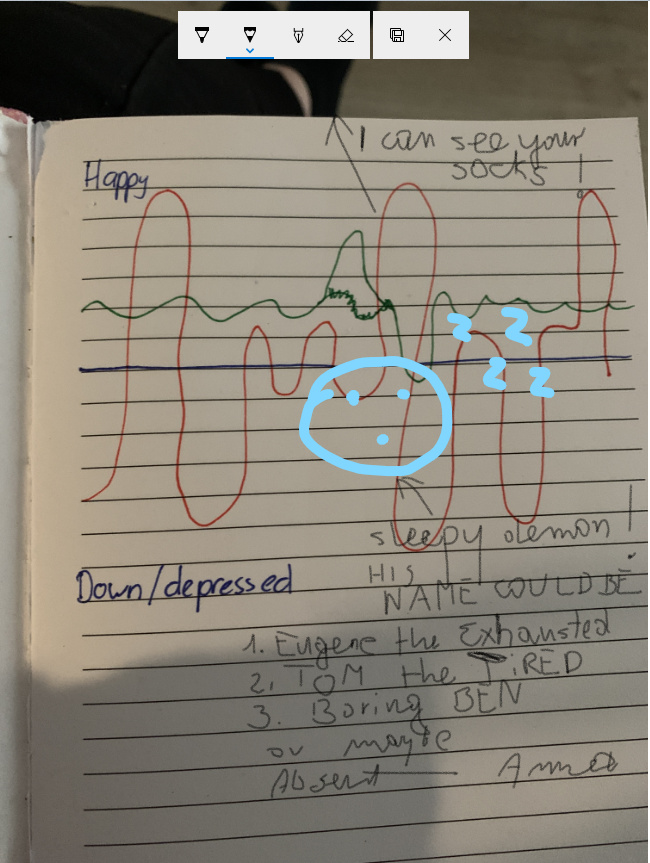 I can see your
socks !
Happy
z z
z z
sleepy demon !
HIS
NAME COULD BE
Down/depressed
1. Eugene the Exhausted
2. TOM the TiRED
3. Boring BEN
or maybe
Absent Anna